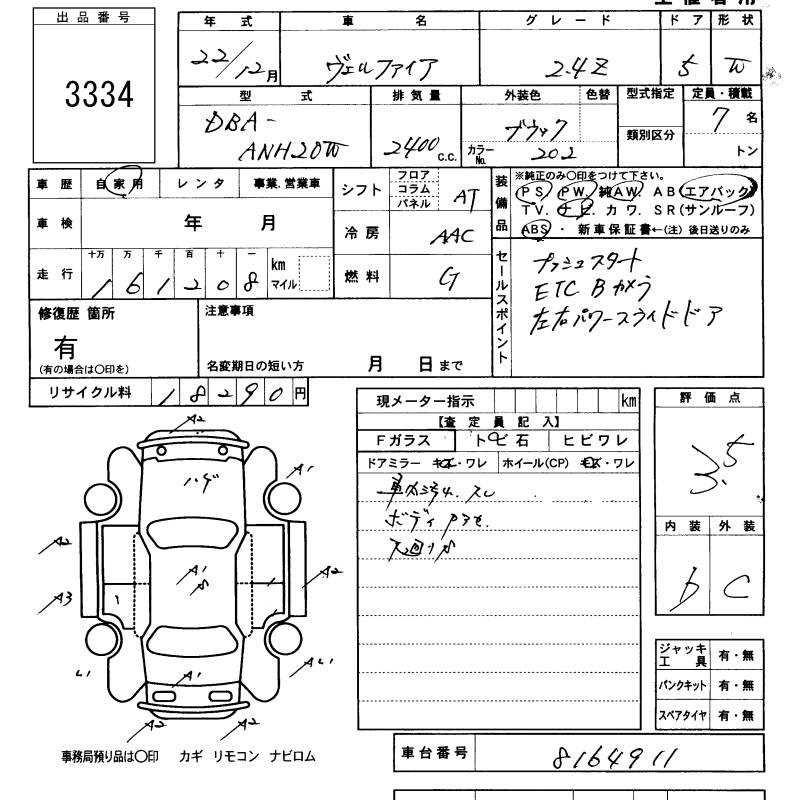 出品番号
3334
年式 車名 グレード ドア 形状
22/12月 ヴェルファイア 2.4Z 5 W
型式 排気量 外装色 色替 型式指定 定員・積載
DBA-
ANH20W
2400c.c.
ブラック
カラーNo. 202
類別区分
7名
トン
車歴 自家用 レンタ 事業.営業車
車検 年 月
走行 十万 万 千 百 十 一
161208 km マイル
シフト フロア コラム パネル AT
冷房 AAC
燃料 G
装備品
※純正のみ〇印をつけて下さい。
PS. PW. 純AW. AB(エアバック)
TV. ナビ. カワ. SR(サンルーフ)
ABS・新車保証書←(注)後日送りのみ
セールスポイント
プッシュスタート
ETC Bカメラ
左右パワースライドドア
修復歴 箇所
有
(有の場合は〇印を)
注意事項
名変期日の短い方 月 日まで
リサイクル料 18290円
現メーター指示 km
【査定員記入】
Fガラス トビ石 ヒビワレ
ドアミラー キズ・ワレ ホイール(CP) キズ・ワレ
ボディ
評価点
3.5
内装 外装
b C
A2
ハゲ
A1
A2
A1
A2
A3
A1
A2
A2
ジャッキ工具 有・無
パンクキット 有・無
スペアタイヤ 有・無
事務局預り品は〇印 カギ リモコン ナビロム
車台番号 8164911